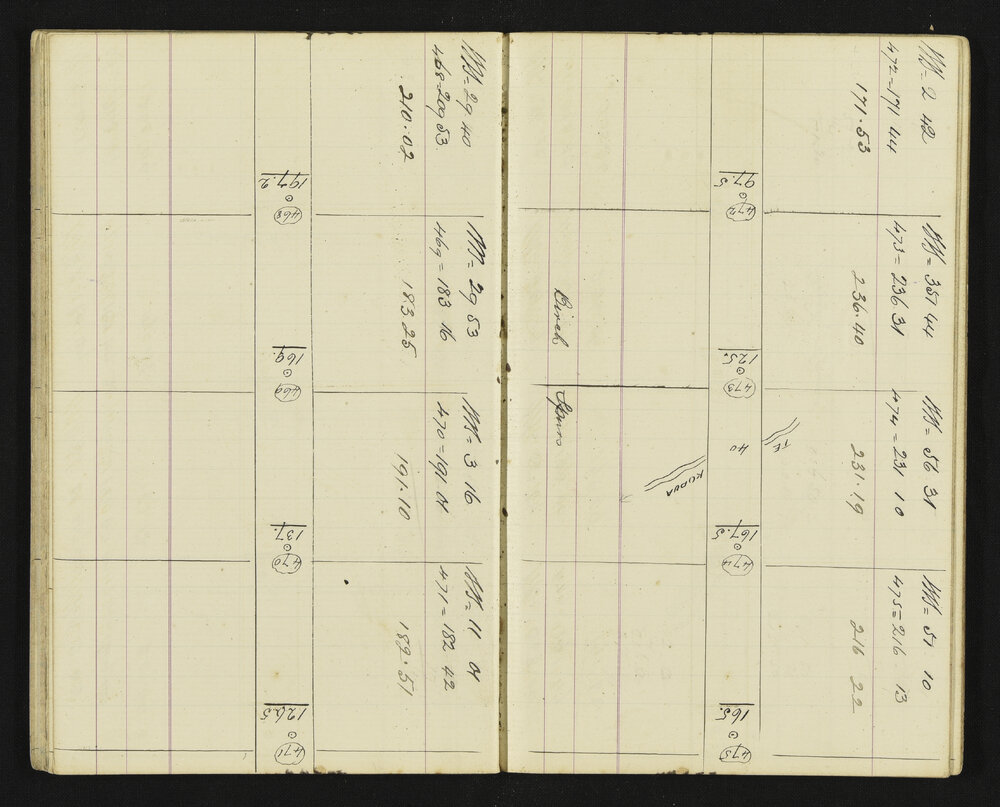 = 29 40
468 = 209 53
210.02
197.2
468
= 29 53
469 = 183 16
183 25
169.
469
= 3 16
470 = 191 01
191.10
137.
470
= 11 01
471 = 182 42
182.51
126.5
471
= 2 42
472 = 171 44
171.53
97.5
472
= 351 44
473 = 236 31
236.40
125.
473
Birch Spur
= 56 31
474 = 231 10
231.19
TE
40
KUDUA
167.5
474
= 51 10
475 = 216 13
216 22
165.
475